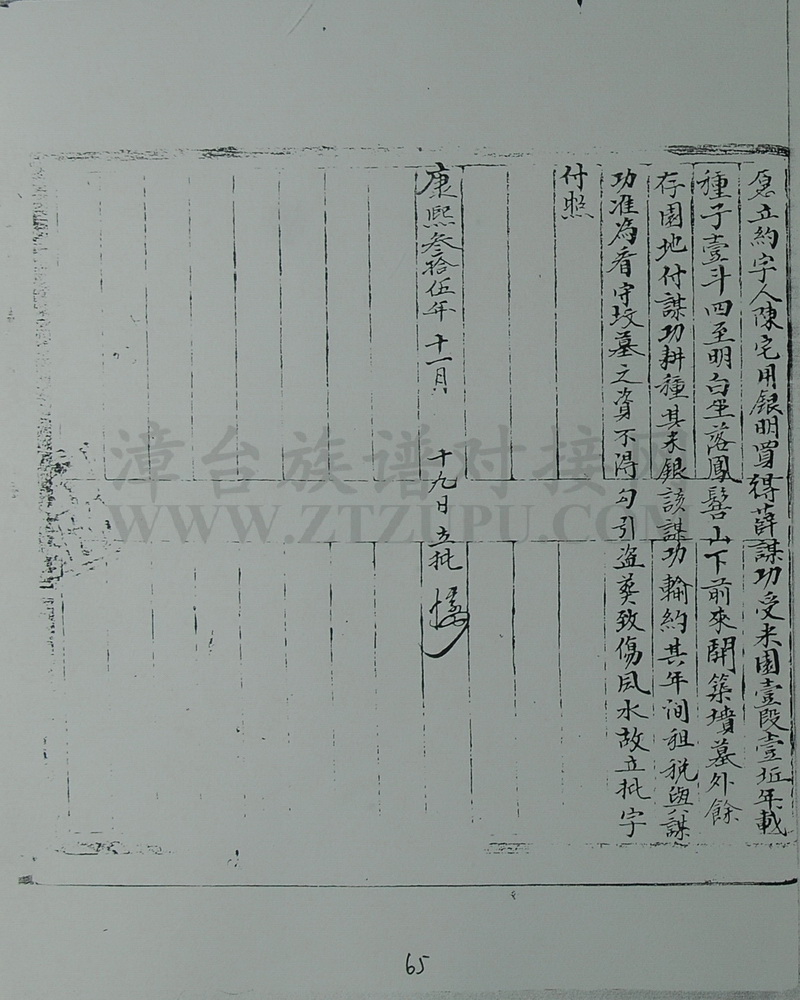 立約字人陳宅用銀明買得薛謀功受米園壹段壹坵年載
種子壹斗四至明白坐落鳳髻山下前來開築墳墓外餘
存園地付謀功耕種其米銀該謀功輪約其年間租稅與謀
功准為看守坟墓之資不得勾引盜葬致傷風水故立批字
付照
康熙叁拾伍年十一月 十九日立批
漳台族谱对接
WWW.ZTZUPU.COM
65